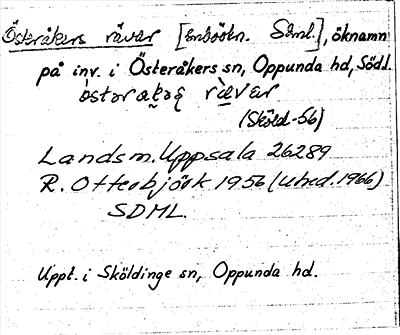 Österåkers rävar [ Söml.], öknamn
på inv. i Österåkers sn, Oppunda hd, Södl.
(Sköld-56)
Landsm. Uppsala 26289
R. Otterbjörk 1956 (uned. 1966)
SDML.
Uppt. i Sköldinge sn, Oppunda hd.